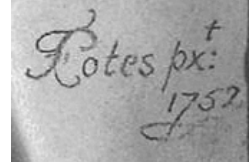 Rotes pxt:
1752